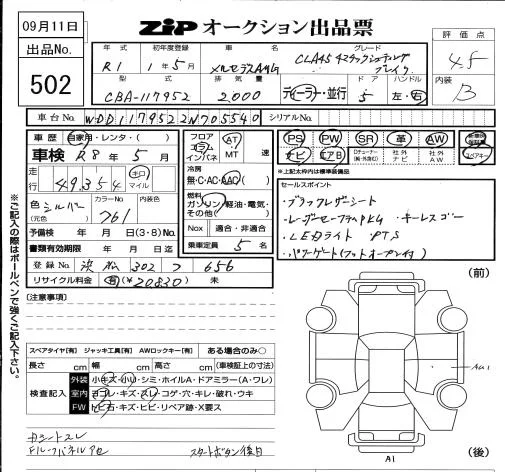 09月11日
ZIP オークション出品票
出品No.
502
評価点
4.5
内装
B
年式 初年度登録 車名 グレード
R1 1年5月 メルセデスAMG CLA45 4マチックシューティング
ブレイク
型式 排気量 ドア ハンドル
CBA-117952 2,000 ディーラー・並行 5 左・右
車台No. WDD1179522N705540 シリアルNo.
車歴 自家用・レンタ・( )
車検 R8年5月
走行 49,354 キロ マイル
色(元色) シルバー カラーNo. 761 内装色
予備検 年 月 日(3・8)No.
書類有効期限 年 月 日迄
登録No. 浜松 302 フ 656
リサイクル料金 有(¥20830) 未
フロア コラム インパネ AT MT 速
冷房 無・C・AC・AAC( )
燃料 ガソリン・軽油・電気・その他( )
Nox 適合・非適合
乗車定員 5 名
PS PW SR 革 AW 新車時保証書
ナビ エアB Dチューナー 社外ナビ 社外AW スペアキー
※上記太枠内は装備
セールスポイント
・ブラックレザーシート
・レーダーセーフティPKG ・キーレスゴー
・LEDライト ・PTS
・パワーゲート(フットオープン付)
※ご記入の際はボールペンで強くご記入下さい。
[注意事項]
スペアタイヤ[有] ジャッキ工具[有] AWロックキー[有] ある場合のみ○
長さ cm 幅 cm 高さ cm (車検証上の寸法)
検査記入
外装 小キズ・小凹・シミ・ホイルA・ドアミラー(A・ワレ)
室内 ヨゴレ・キズ・スレ・コゲ・穴・キレ・破れ・ウキ
FW トビ石・キズ・ヒビ・リペア跡・X要ス
(前)
AU1
A1
(後)
スタートボタン後日